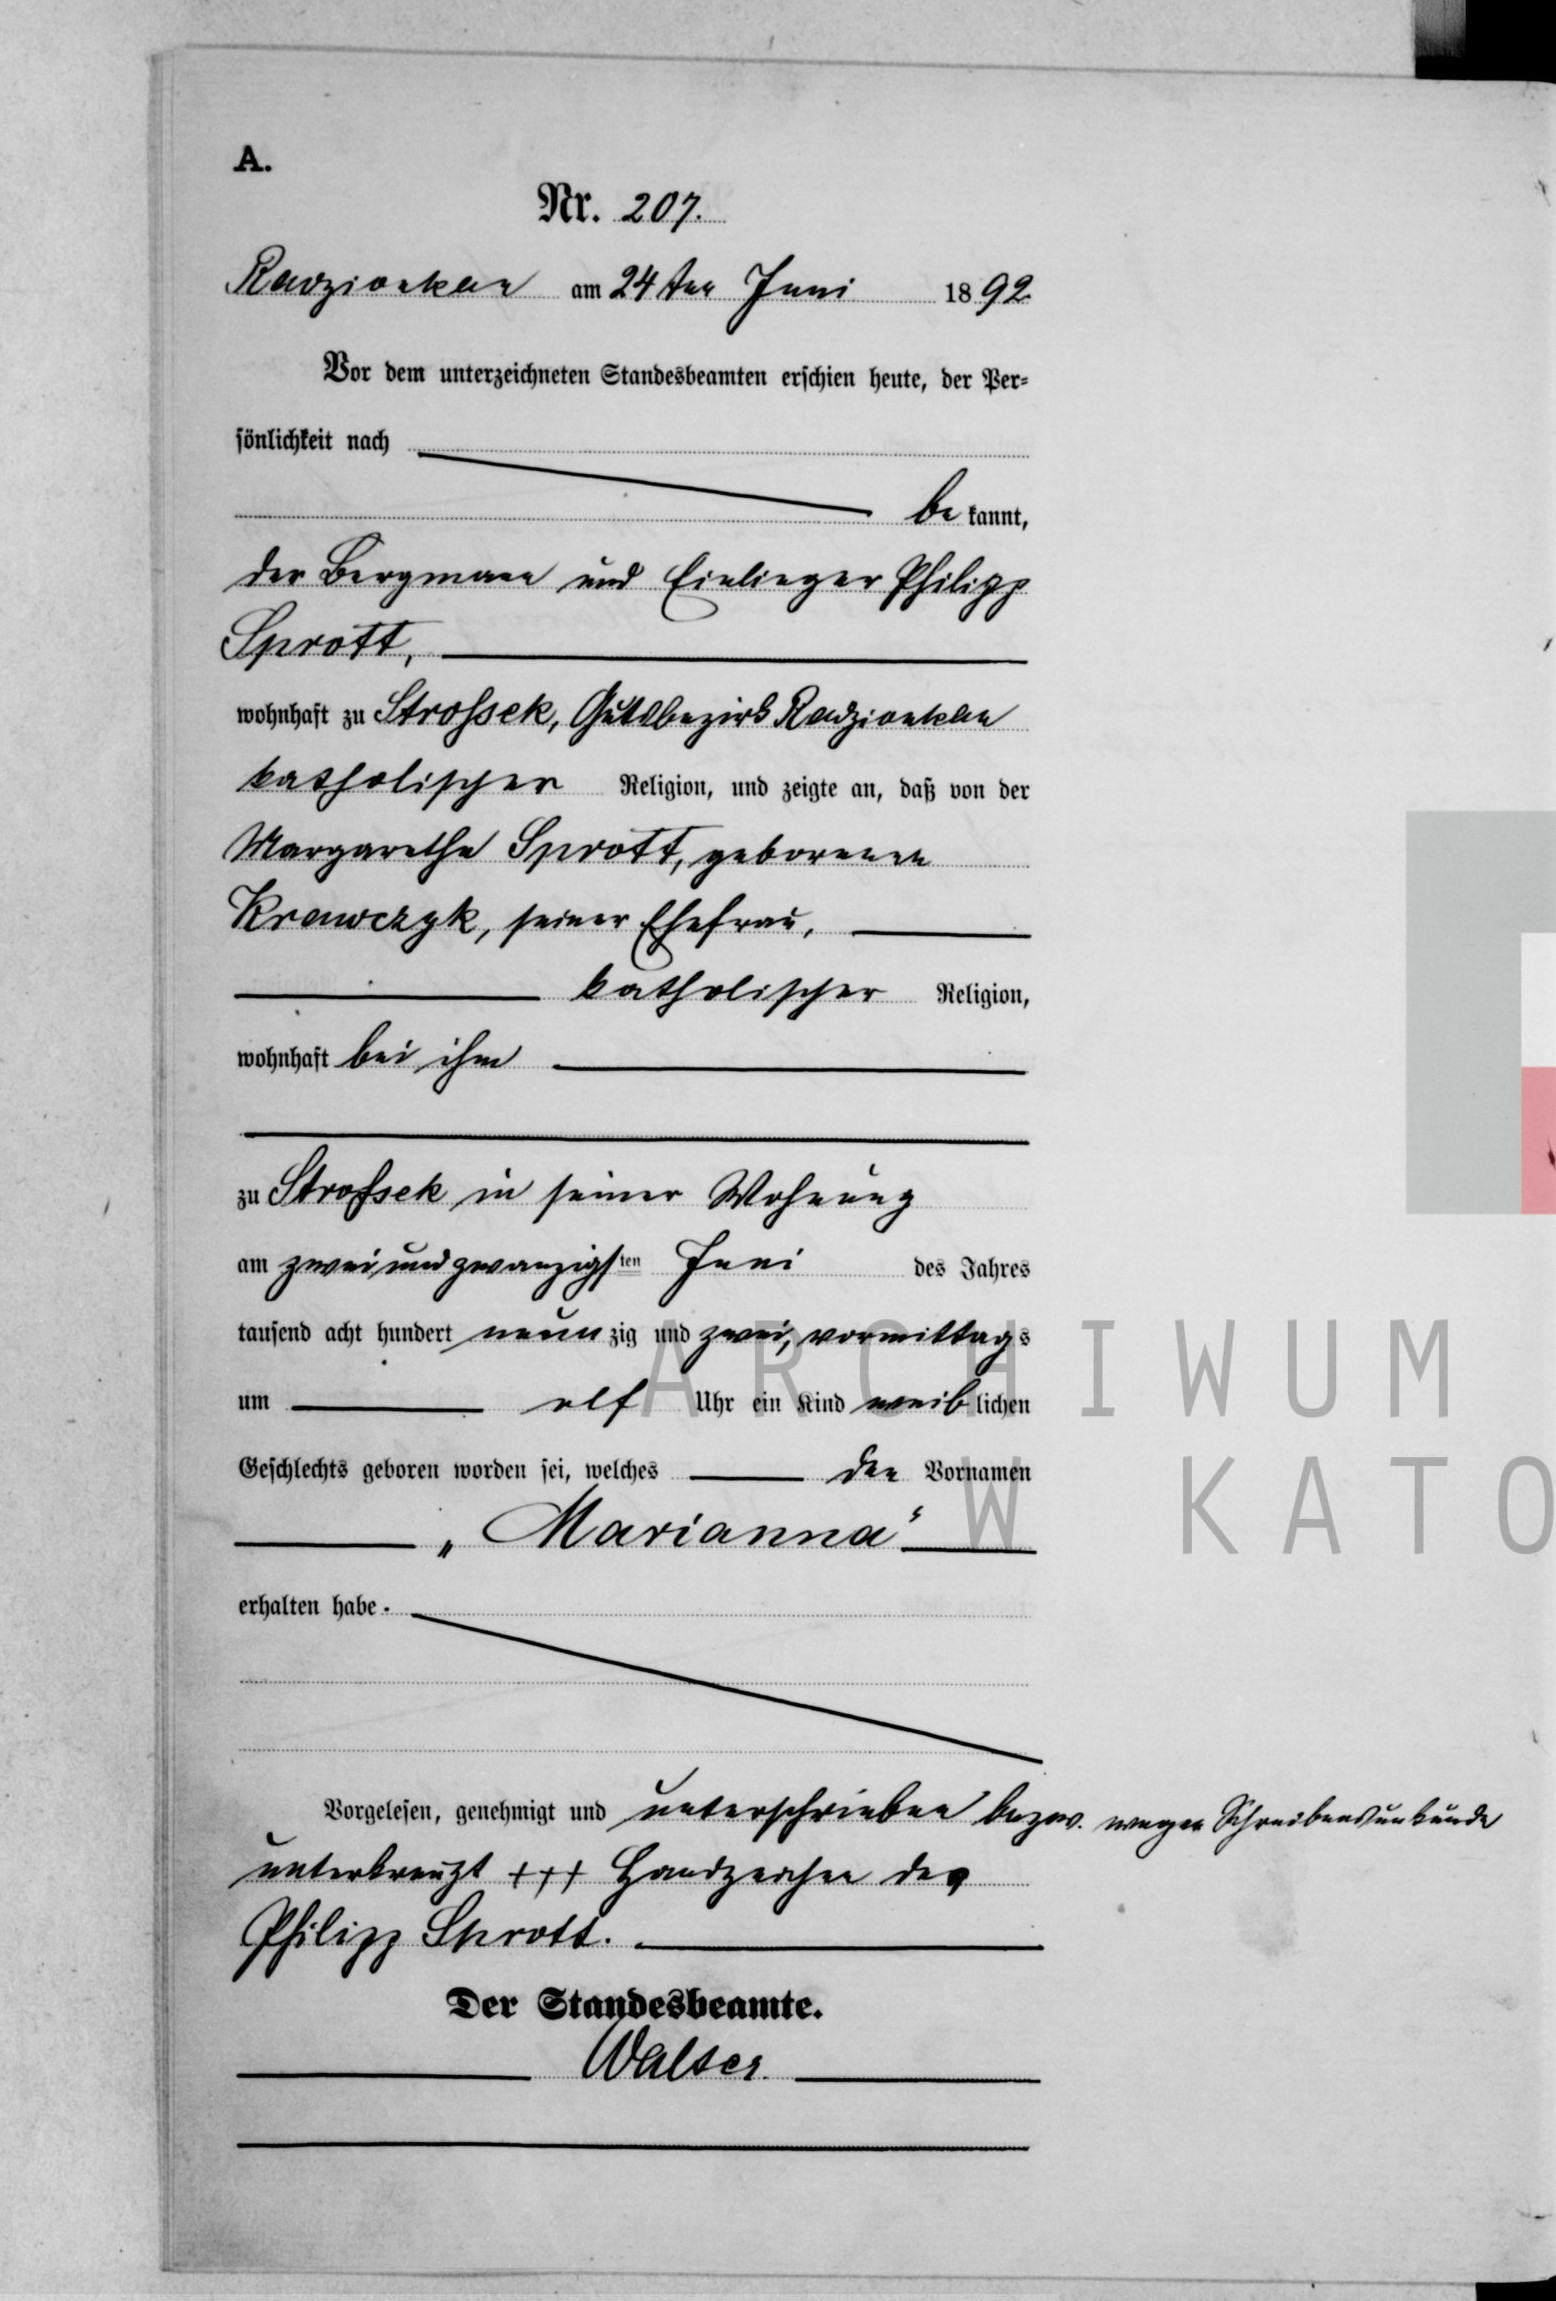 A.
Nr. 207.
Radzionkau am 24ten Juni 1892
Vor dem unterzeichneten Standesbeamten erschien heute, der Per-
sönlichkeit nach
bekannt,
der Bergmann und Einlieger Philipp
Sprott,
wohnhaft zu Strossek, Gutsbezirk Radzionkau
katholischer Religion, und zeigte an, daß von der
Margarethe Sprott, geborenen
Krawczyk, seiner Ehefrau,
katholischer Religion,
wohnhaft bei ihm
zu Strossek in seiner Wohnung
am zweiundzwanzigsten Juni des Jahres
tausend acht hundert neunzig und zwei, vormittags
um elf Uhr ein Kind weiblichen
Geschlechts geboren worden sei, welches den Vornamen
„Marianna“
erhalten habe.
Vorgelesen, genehmigt und unterschrieben bezw. wegen Schreibensunkunde
unterkreuzt +++ Handzeichen des
Philipp Sprott.
Der Standesbeamte.
Walter.
ARCHIWUM
W KATO